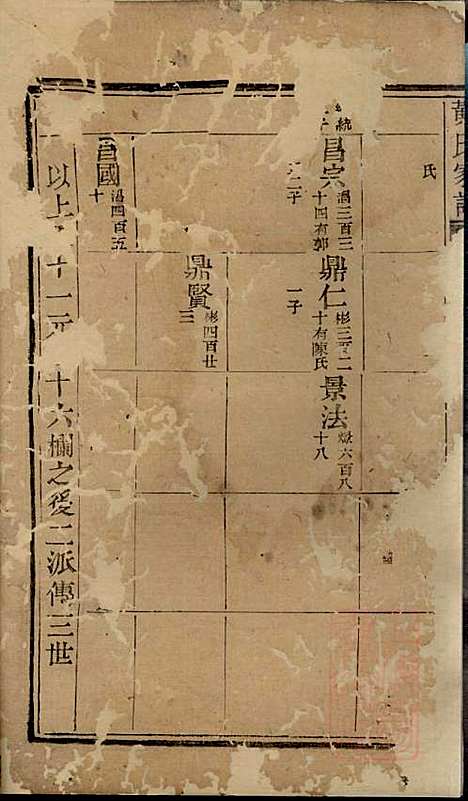 黃氏家譜
氏
統
昌宗
滔三百三
十四有郭
二子
鼎仁
彬三百二
十有陳氏
一子
景法
六百八
十八
鼎賢
彬四百廿
三
昌國
滔四百五
十
以上 十一元 十六欄之後二派傳三世